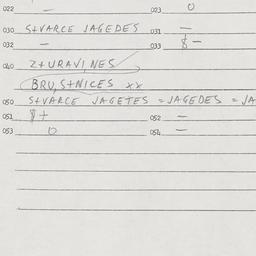 022 — 023 0
030 S+VARCE JAGEDES 031 —
032 — 033 8 —
040 Z+URAVINES
BRU,S+NICES xx
050 S+VARCE JAGETES = JAGEDES = JA
051 8+ 052 —
053 0 054 —